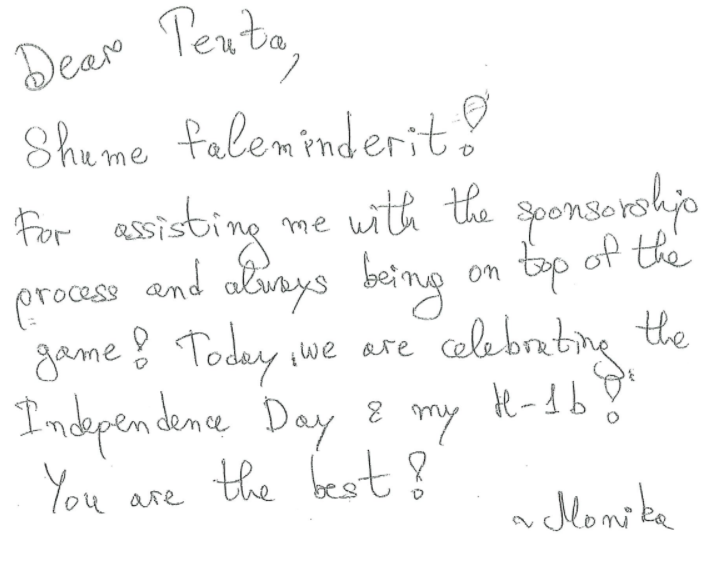 Dear Penta,
Shume faleminderit!
For assisting me with the sponsorship
process and always being on top of the
game! Today, we are celebrating the
Independence Day & my H-1b!
You are the best!
~ Monika